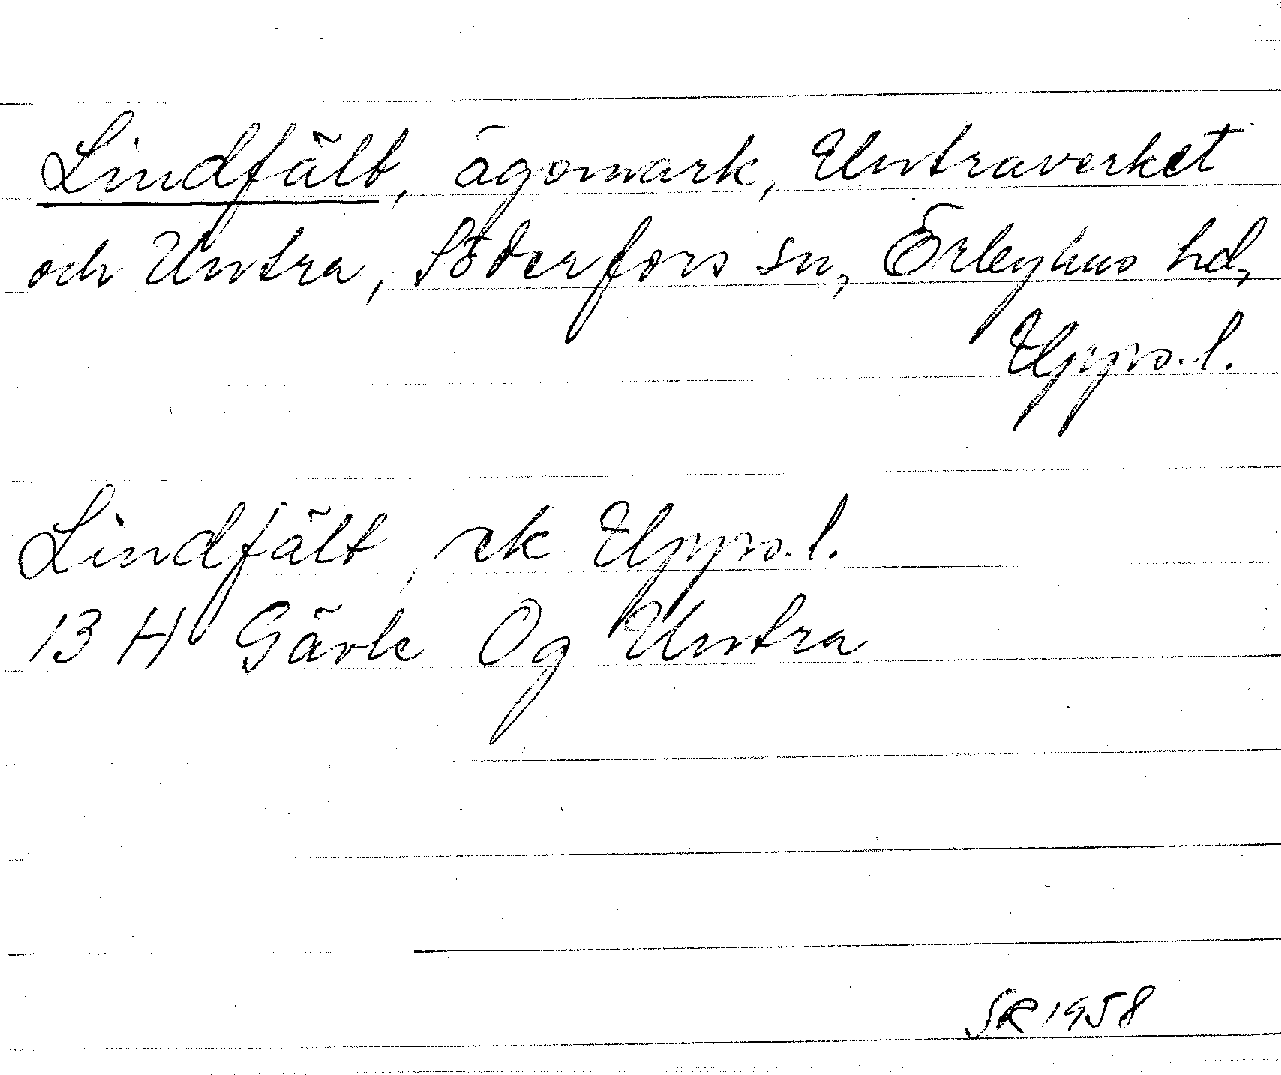 Lindfält, ägomark, Untraverket
och Untra, Söderfors sn, Örbyhus hd,
Upps.l.
Lindfält, ek Upps.l.
13 H Gävle Og Untra
SR 1958